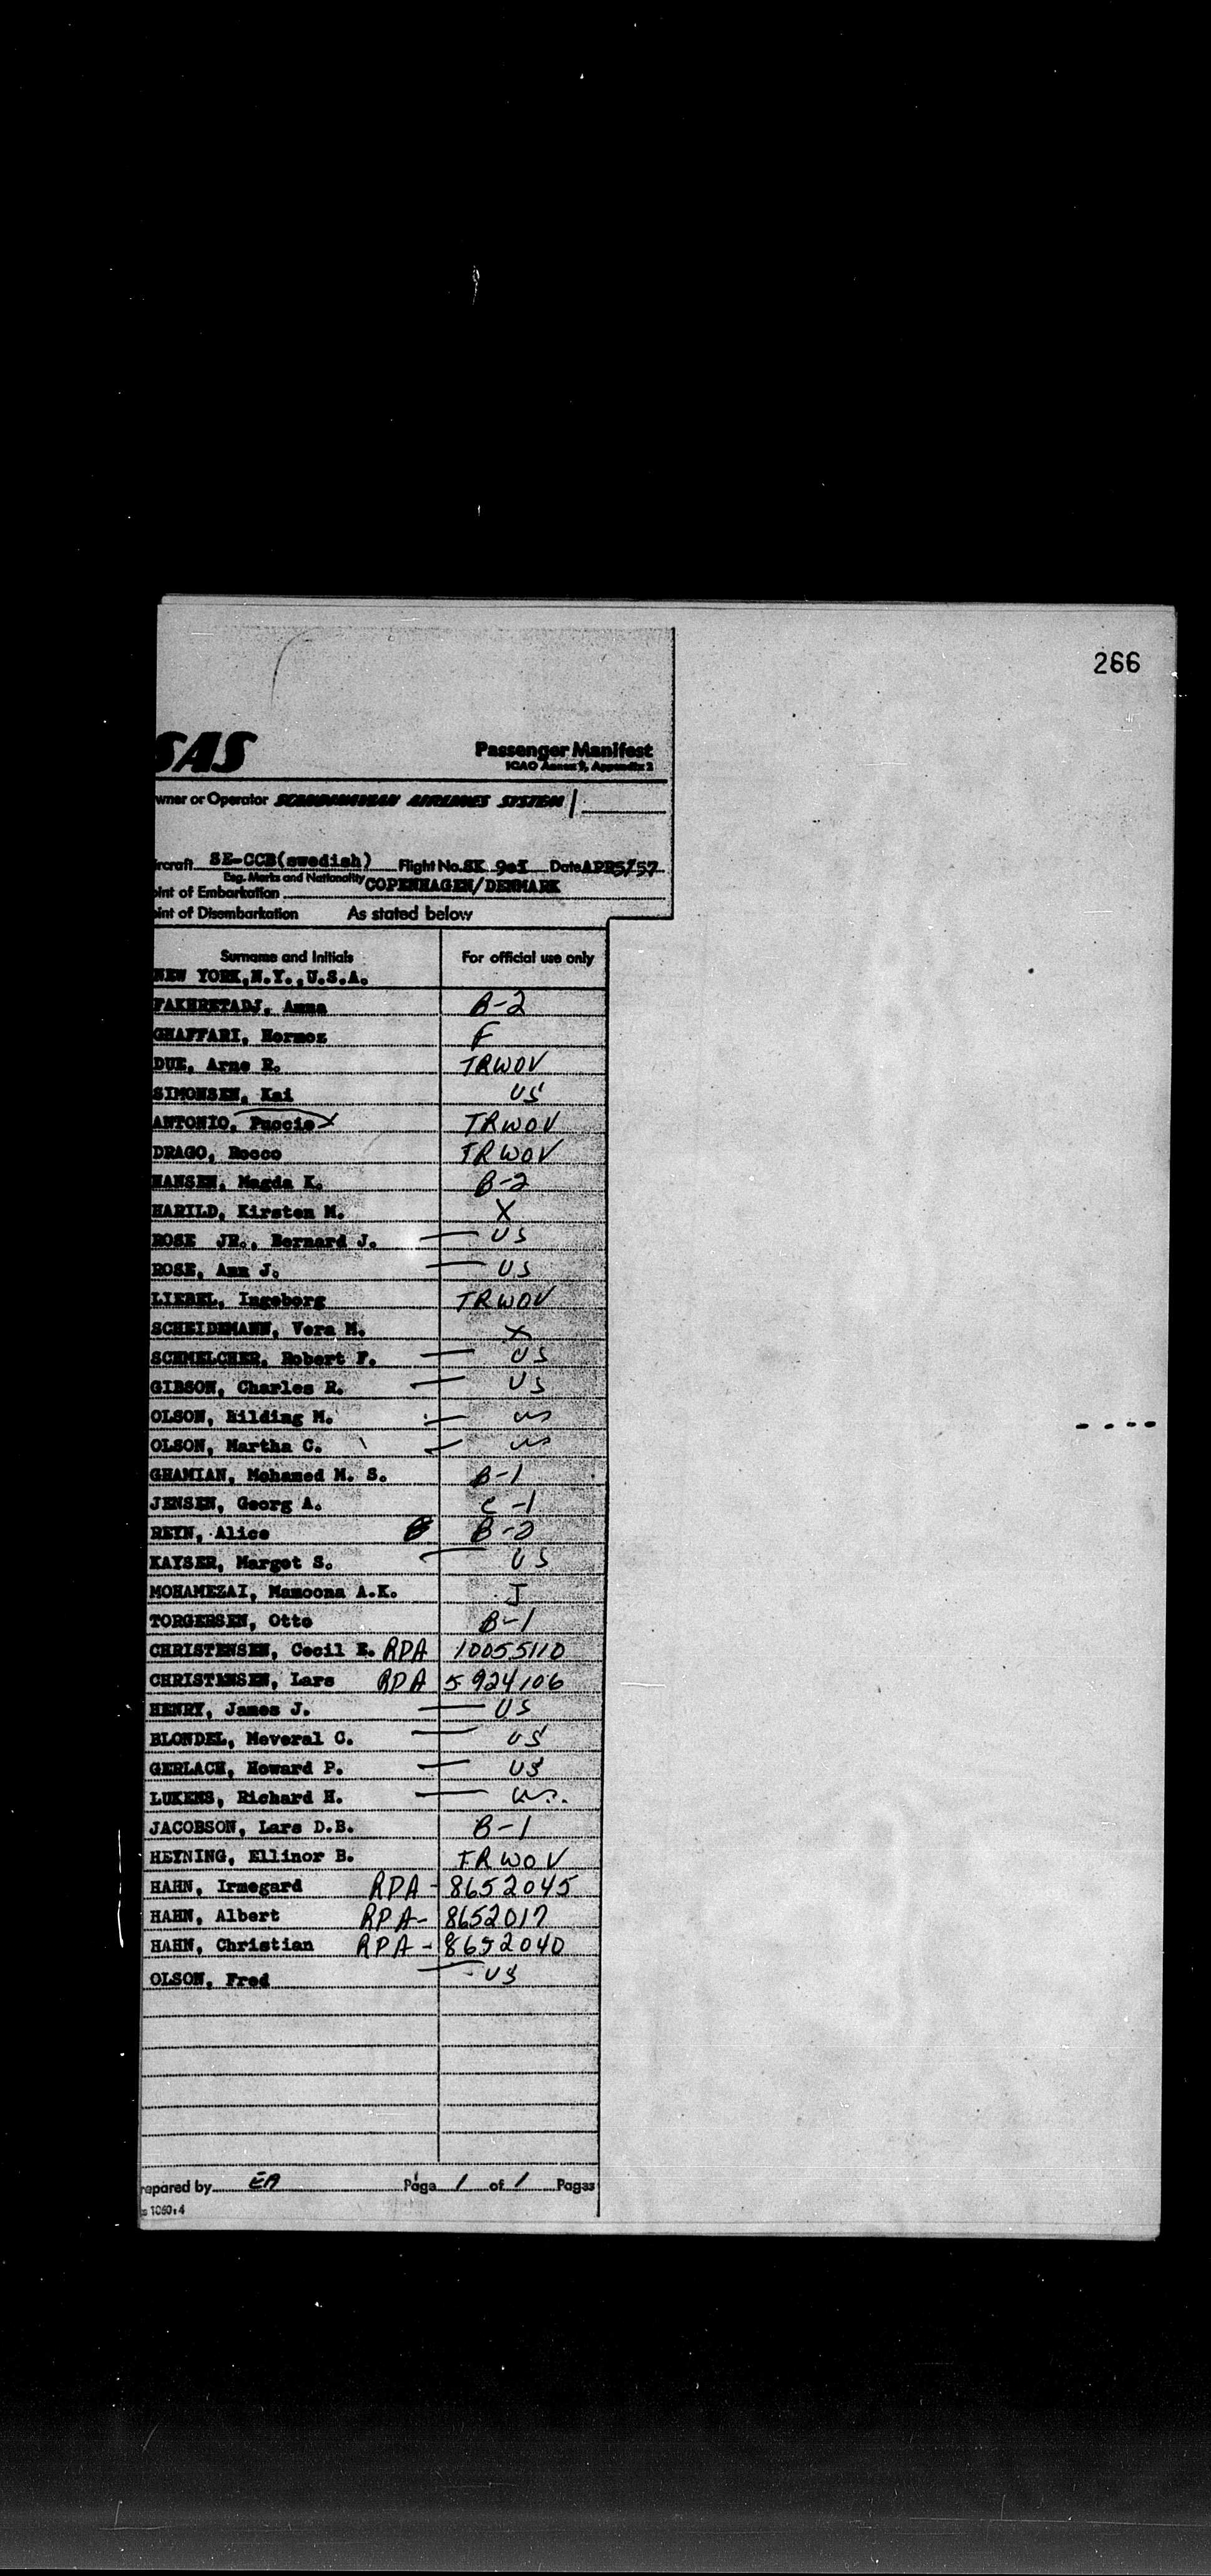 266
SAS
Passenger Manifest
ICAO Annex 9, Appendix 2
wner or Operator SCANDINAVIAN AIRLINES SYSTEM
ircraft SE-CCB(swedish) Flight No. SK 901 Date APR5/57
Reg. Marks and Nationality
oint of Embarkation COPENHAGEN/DENMARK
oint of Disembarkation As stated below
Surname and Initials For official use only
NEW YORK,N.Y.,U.S.A.
FAKHRETADJ, Amma B-2
GHAFFARI, Hormoz F
DUE, Arne R. TRWOV
SIMONSEN, Kai US
ANTONIO, Puccio TRWOV
DRAGO, Rocco TRWOV
HANSEN, Magda K. B-2
HARILD, Kirsten M. X
ROSE JR., Bernard J. — US
ROSE, Ann J. — US
LIEBEL, Ingeborg TRWOV
SCHEIDEMANN, Vera M. X
SCHMELCHER, Robert F. — US
GIBSON, Charles R. — US
OLSON, Hilding M. — US
OLSON, Martha C. — US
GHAMIAN, Mohamed M. S. B-1
JENSEN, Georg A. C-1
REYN, Alice B-2
KAYSER, Margot S. — US
MOHAMEZAI, Mamoona A.K. J
TORGERSEN, Otto B-1
CHRISTENSEN, Cecil E. RPA 10055110
CHRISTENSEN, Lars RPA 5924106
HENRY, James J. — US
BLONDEL, Meveral C. — US
GERLACH, Howard P. — US
LUKENS, Richard H. — US.
JACOBSON, Lars D.B. B-1
HEYNING, Ellinor B. TRWOV
HAHN, Irmegard RPA - 8652045
HAHN, Albert RPA - 8652017
HAHN, Christian RPA - 8652040
OLSON, Fred — US
repared by EA Page 1 of 1 Pages
1050:4